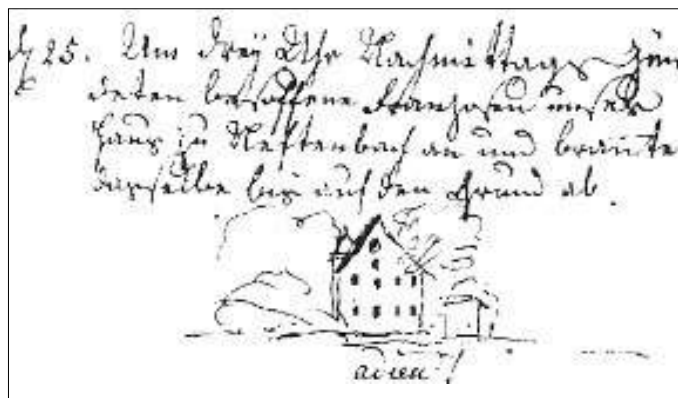 d 25. Um dreÿ Uhr Nachmittags zün
deten besoffene Franzosen unser
Haus zu Neftenbach an und brannte
dasselbe bis auf den Grund ab.
adieu!